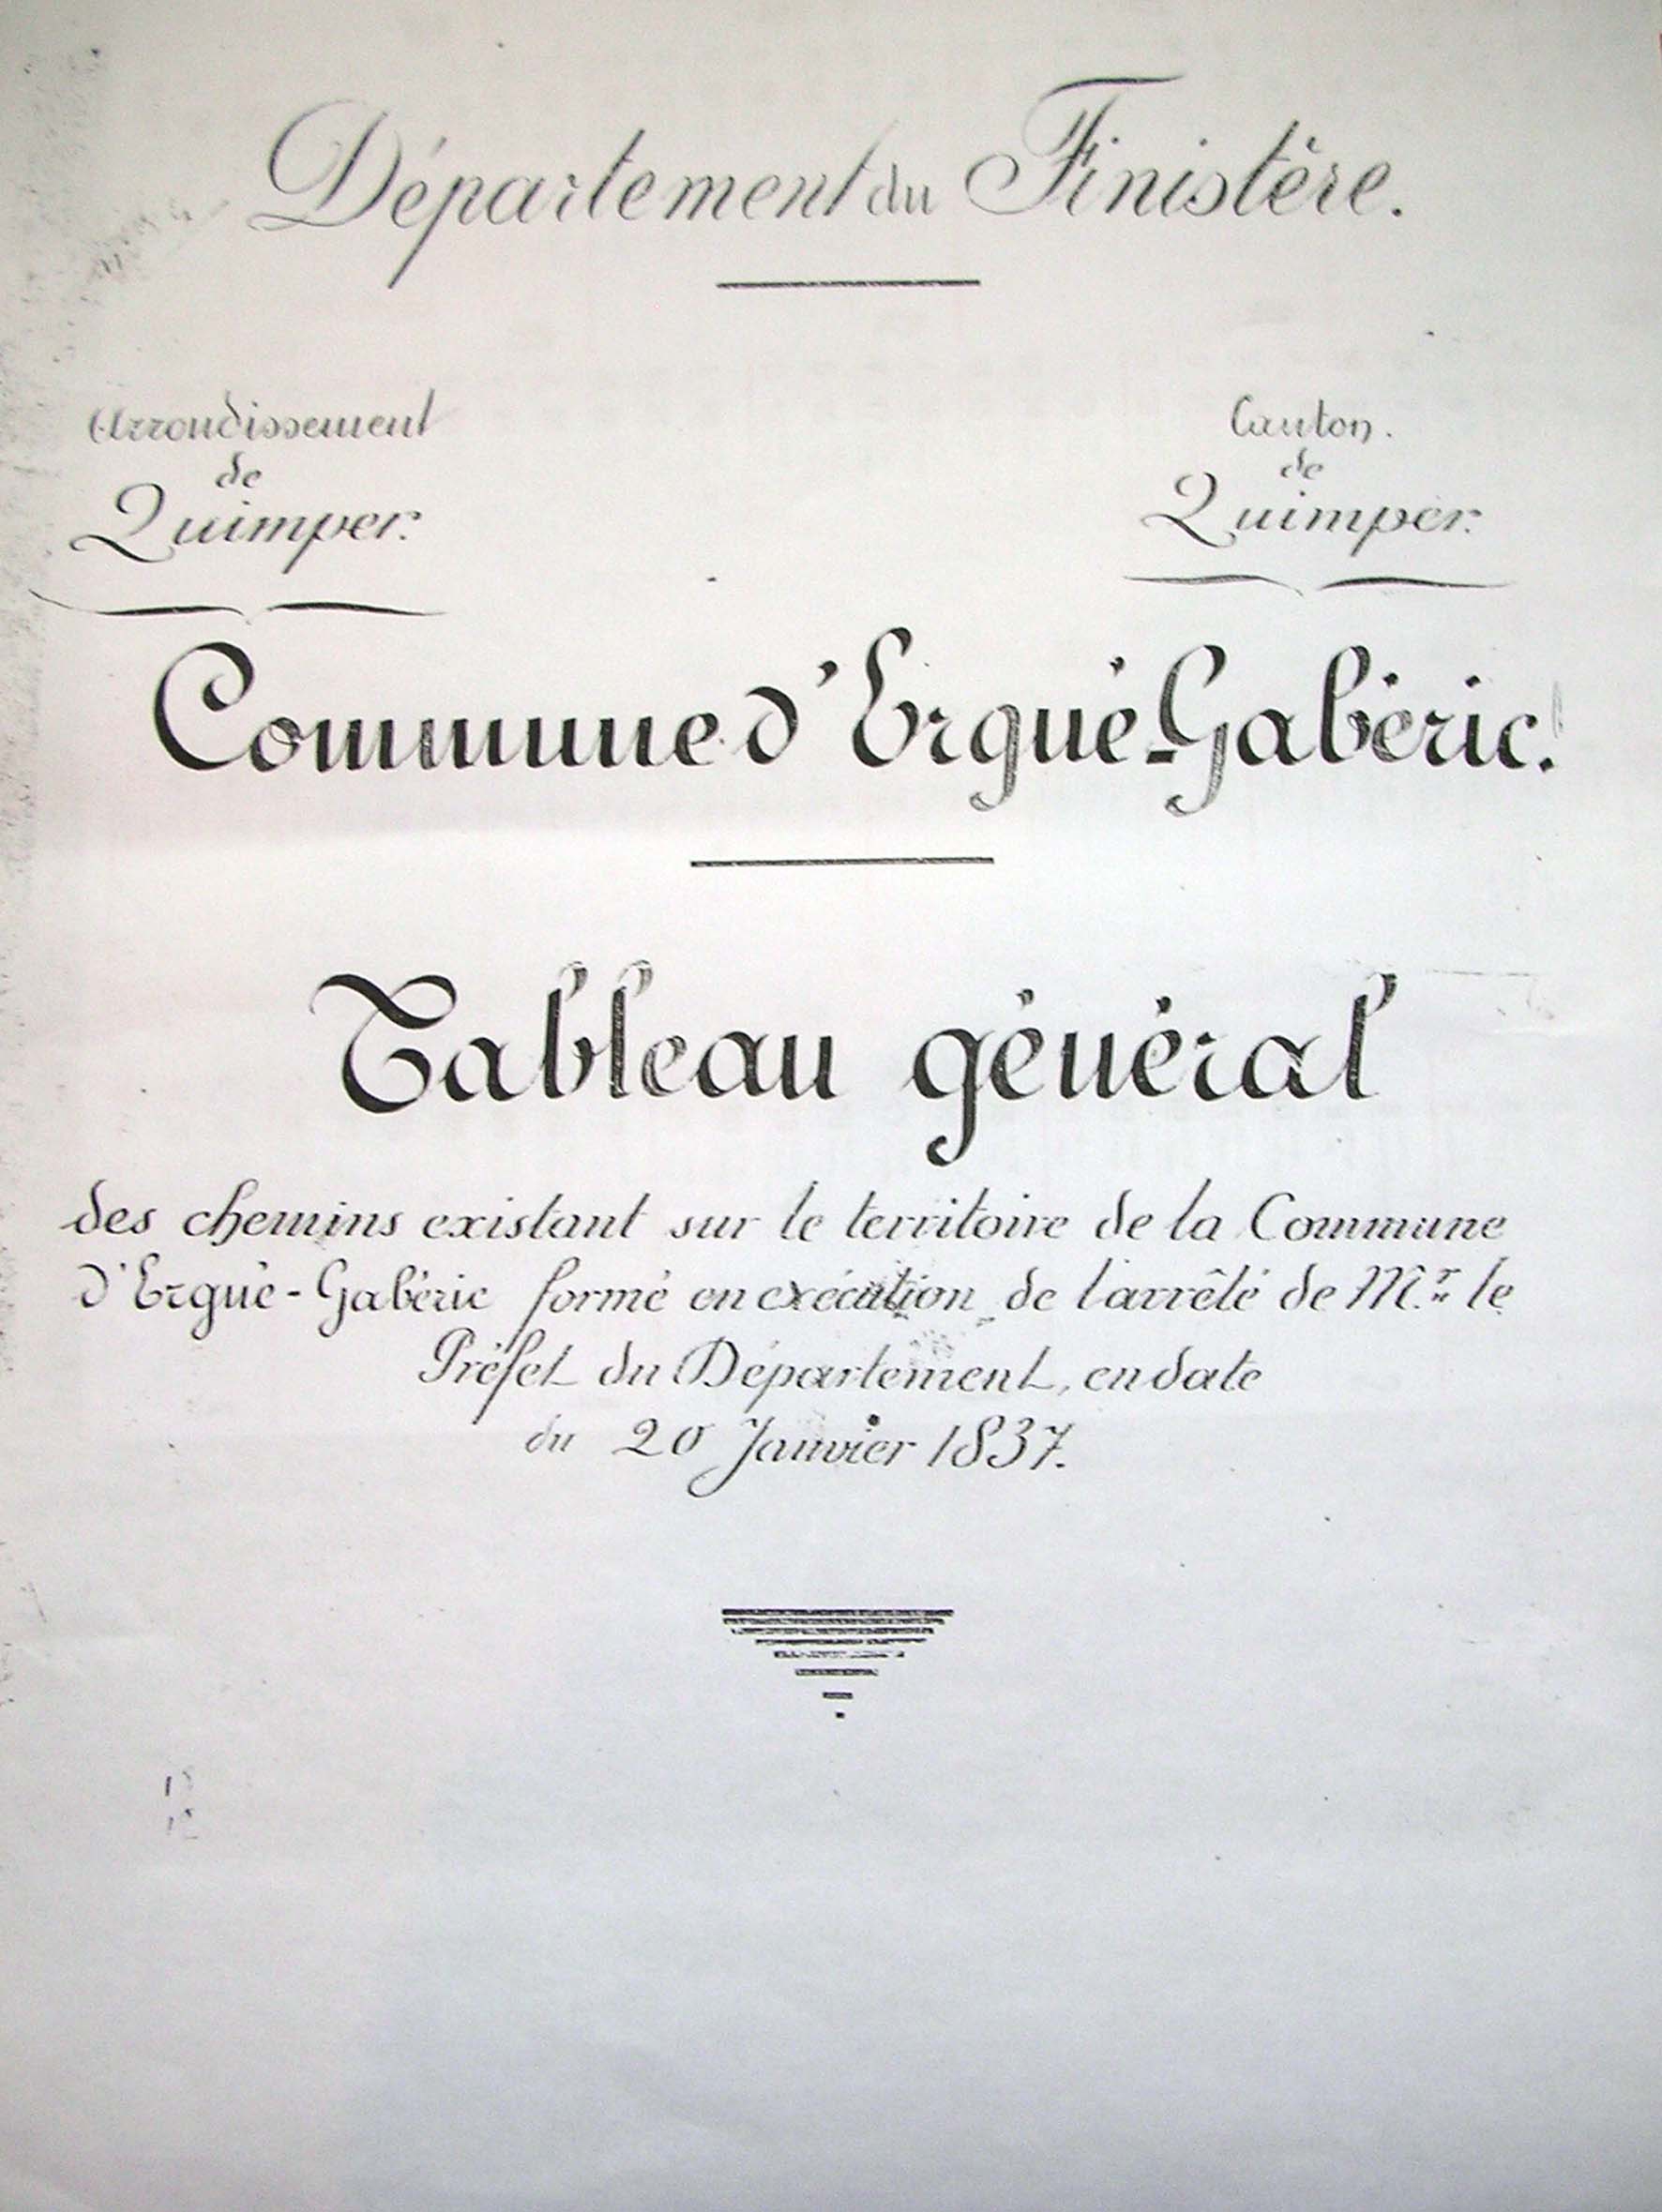 Département du Finistère.
Arrondissement
de
Quimper.
Canton.
de
Quimper.
Commune d'Ergué-Gabéric.
Tableau général
des chemins existant sur le territoire de la Commune
d'Ergué-Gabéric formé en exécution de l'arrêté de M.r le
Préfet du Département, en date
du 20 Janvier 1837.